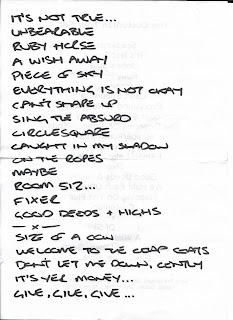 IT'S NOT TRUE...
UNBEARABLE
RUBY HORSE
A WISH AWAY
PIECE OF SKY
EVERYTHING IS NOT OKAY
CAN'T SHAPE UP
SING THE ABSURD
CIRCLESQUARE
CAUGHT IN MY SHADOW
ON THE ROPES
MAYBE
ROOM 512...
FIXER
GOOD DEEDS + HIGHS
— x —
SIZE OF A COW
WELCOME TO THE CHEAP SEATS
DON'T LET ME DOWN, GENTLY
IT'S YER MONEY...
GIVE, GIVE, GIVE...